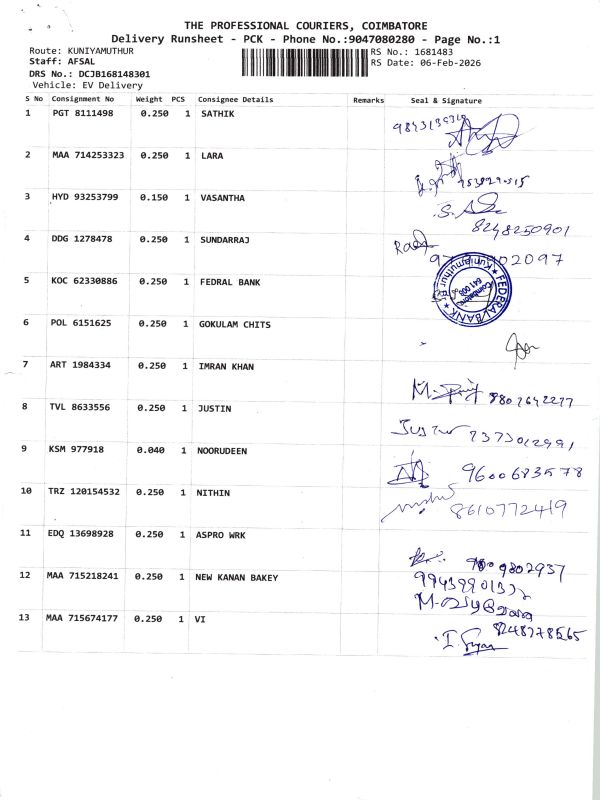 THE PROFESSIONAL COURIERS, COIMBATORE
Delivery Runsheet - PCK - Phone No.:9047080280 - Page No.:1
Route: KUNIYAMUTHUR
RS No.: 1681483
Staff: AFSAL
RS Date: 06-Feb-2026
DRS No.: DCJB168148301
Vehicle: EV Delivery
S No Consignment No Weight PCS Consignee Details Remarks Seal & Signature
1 PGT 8111498 0.250 1 SATHIK
2 MAA 714253323 0.250 1 LARA
3 HYD 93253799 0.150 1 VASANTHA
8248250901
4 DDG 1278478 0.250 1 SUNDARRAJ
02097
5 KOC 62330886 0.250 1 FEDRAL BANK
FEDERAL BANK
Kuniyamuthur
Coimbatore
641 008
6 POL 6151625 0.250 1 GOKULAM CHITS
7 ART 1984334 0.250 1 IMRAN KHAN
8 TVL 8633556 0.250 1 JUSTIN
Justin
9 KSM 977918 0.040 1 NOORUDEEN
9600683578
10 TRZ 120154532 0.250 1 NITHIN
8610772419
11 EDQ 13698928 0.250 1 ASPRO WRK
12 MAA 715218241 0.250 1 NEW KANAN BAKEY
13 MAA 715674177 0.250 1 VI
8248778565